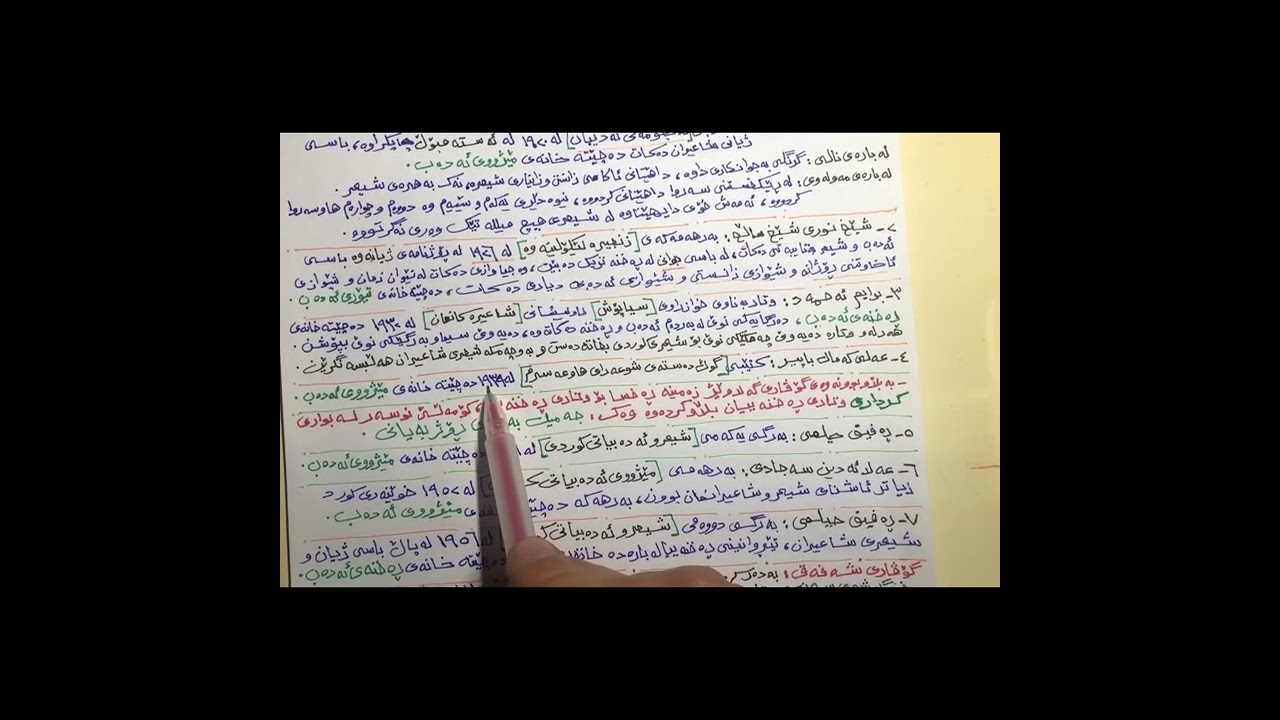 کۆمەڵەی ئەدیبان] لە ١٩٢٠ لە ئەستەمبۆڵ چاپکراوە، باسی
ژیانی شاعیران دەکات دەچێتە خانەی مێژووی ئەدەب.
لەبارەی نالی: گرنگی بەجوانکاری داوە، داهێنانی ئاکامی زانین وزانیاری شیعرە، نەک بەهرەی شیعر.
لەبارەی مەولەوی: لە پێکخستنی سەروا داهێنانی کردووە، نیوە دێڕی یەکەم و سێیەم وە دووەم و چوارەم هاوسەروا
کردووە، ئەمەش خۆی دایهێناوە لە شیعری هیچ میللەتێک وەری نەگرتووە.
٢- شێخ نوری شێخ ساڵح: بەرهەمەکەی [زنجیرە لێکۆڵینەوە] لە ١٩٢٦ لە ڕۆژنامەی ژیانەوە باسی
ئەدەب و شیعر تایبەتی دەکات، لە باسی جوانی لە ڕەخنە نزیک دەبێ، وە جیاوازی دەکات لەنێوان زمان و شێوازی
ئاخاوتنی ڕۆژانە و شێوازی زانستی و شێوازی ئەدەبی دیاری دەکات، دەچێتە خانەی تیۆری ئەدەب.
٣- بوایم ئەحمەد: وتار بەناوی خوازراوی [سیاپۆش] ناونیشانی [شاعیرە کانمان] لە ١٩٣٠ دەچێتە خانەی
ڕەخنەی ئەدەب، دەرگایەکی نوێ لەبەردەم ئەدەب و ڕەخنە دەکاتەوە، دەیەوێ سیما و بەرگێکی نوێ بپۆشن.
هەر لەو وتارە دەیەوێ چەمکێکی نوێ بۆ شیعری کوردی بخاتە دەست و بەو چەمکە شیعری شاعیران هەڵبسەنگێن.
٤- عەلی کەمال باپیر: کتێبی [گوڵدەستەی شوعەرای هاوعەسرم] لە ١٩٣٩ دەچێتە خانەی مێژووی ئەدەب.
- بە بڵاوبونەوەی گۆڤاری گەلاوێژ زەمینە ڕەخسا بۆ وتاری ڕەخنە، کۆمەڵێ نوسەر لە بواری
کرداری وتاری ڕەخنەییان بڵاوکردەوە وەک: جەمیل بەندی ڕۆژبەیانی.
٥- ڕەفیق حیلمی: بەرگی یەکەمی [شیعر و ئەدەبیاتی کوردی] لە دەچێتە خانەی مێژووی ئەدەب.
٦- عەلائەدین سەجادی: بەرهەمی [مێژووی ئەدەبیاتی لە ١٩٥٢ خوێنەری کورد
زیاتر ئاشنای شیعر و شاعیرانمان بوون، بەرهەمەکە مێژووی ئەدەب.
٧- ڕەفیق حیلمی: بەرگی دووەمی [شیعر و ئەدەبیاتی لە ١٩٥٦ لەپاڵ باسی ژیان و
شیعری شاعیران، تێڕوانینی ڕەخنەییان لەبارە دەچێتە خانەی ڕەخنەی ئەدەب.
گۆڤاری شەفەق: